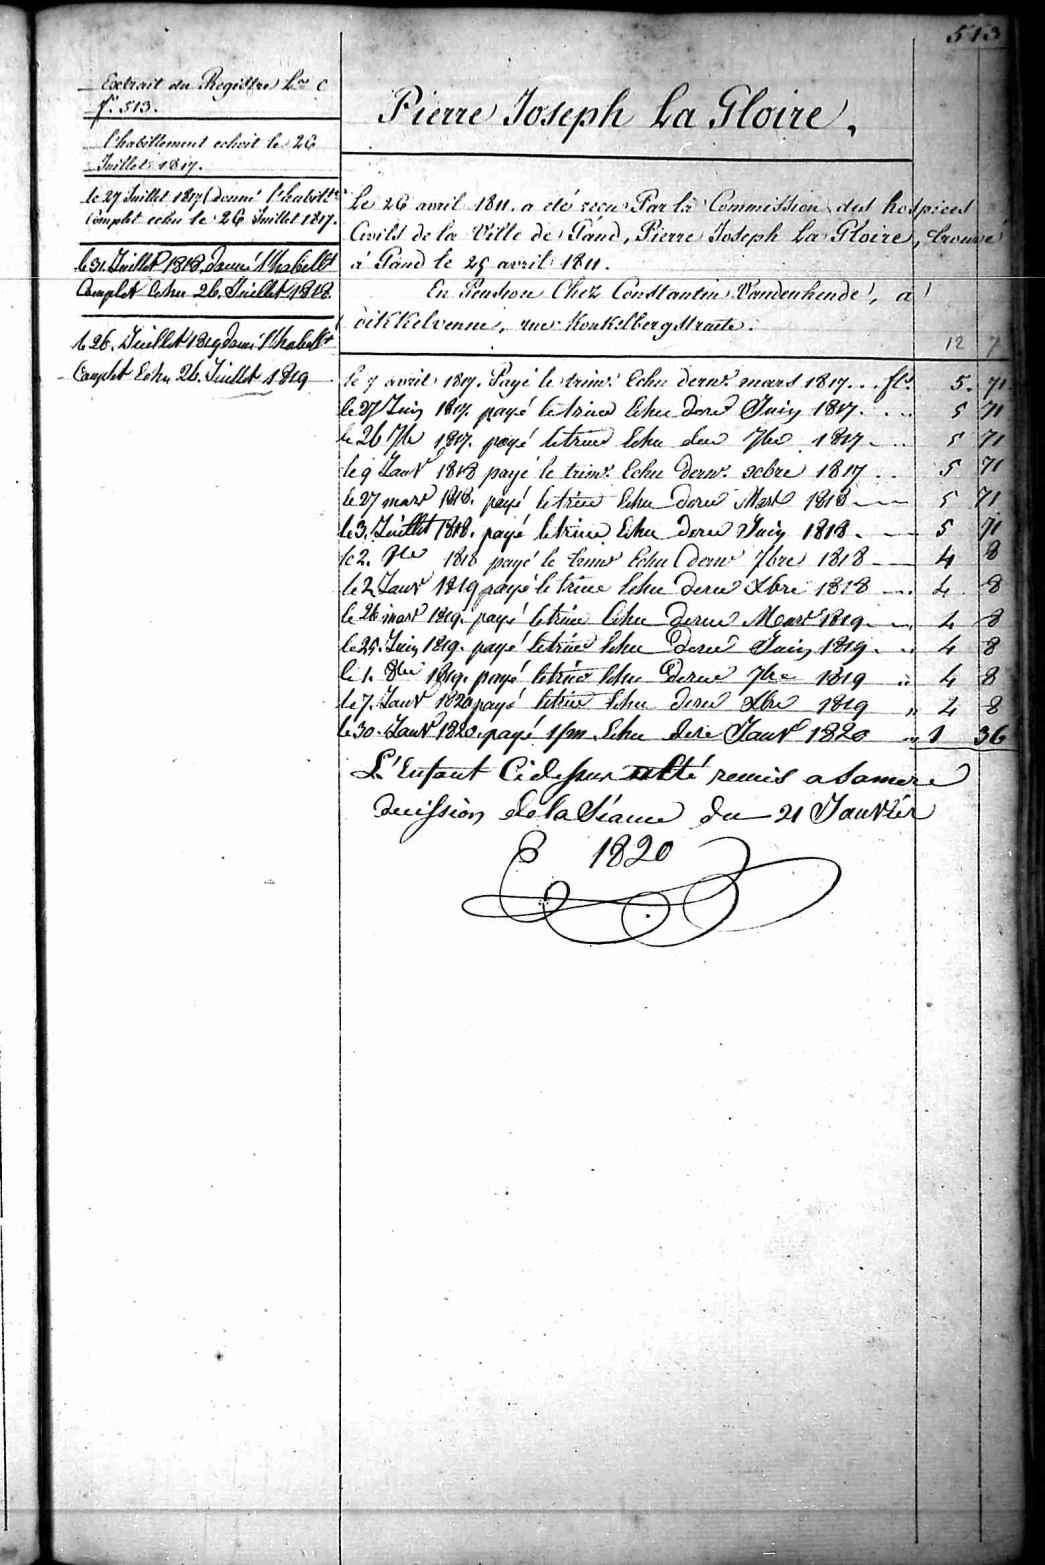 513
Extrait du Registre Lre C
f°. 513.
l'habillement echoit le 26
Juillet 1817.
le 27 Juillet 1817 donné l'habillt
complet echu le 26 Juillet 1817.
le 31. Juillet 1818. donné l'habillt
Complet Echu 26. Juillet 1818.
le 26. Juillet 1819 donné l'habillt
Complet Echu 26. Juillet 1819
Pierre Joseph La Gloire,
Le 26 avril 1811. a été recu Par la Commission des hospices
Civils de la Ville de Gand, Pierre Joseph La Gloire, trouvé
á Gand le 25 avril 1811.
En Pension Chez Constantin Vandenhende, a
dikkelvenne, rue Konkelbergstraete.
12 7
le 7 avril 1817. Payé le trim. Echu dernr. mars 1817... fls. 5. 71
le 27 Juin 1817. payé le trime Echu dernr Juin 1817. ... 5 71
le 26 7bre 1817. payé le trime Echu der 7bre 1817 - .. 5 71
le 9 Janvr 1818 payé le trimr. Echu dernr. xbre 1817 .. 5 71
le 27 mars 1818. payé le trime Echu derer Mars 1818 --- 5 71
le 3. Juillet 1818. payé le trime Echu derer Juin 1818. -- 5 71
le 2. 1818 payé le trimr Echu dernr 7bre 1818 --- 4 8
le 2 Janvr 1819 payé le trime Echu derer Xbre 1818 --- 4 8
le 26 mars 1819. payé le trime Echu derer Mars 1819 -- 4 8
le 25. Juin 1819. payé le trime Echu derer Juin 1819. " 4 8
le 1. 8bre 1819. payé le trime Echu derer 7bre 1819 " 4 8
le 7. Janvr 1820 payé le trime Echu derer Xbre 1819 " 4 8
le 30. Janvr 1820. payé 1/m Echu dere Janvr 1820 " 1 36
L'Enfant Cidessus a été remis a sa mere
decission de la Séance du 21 Janvier
1820